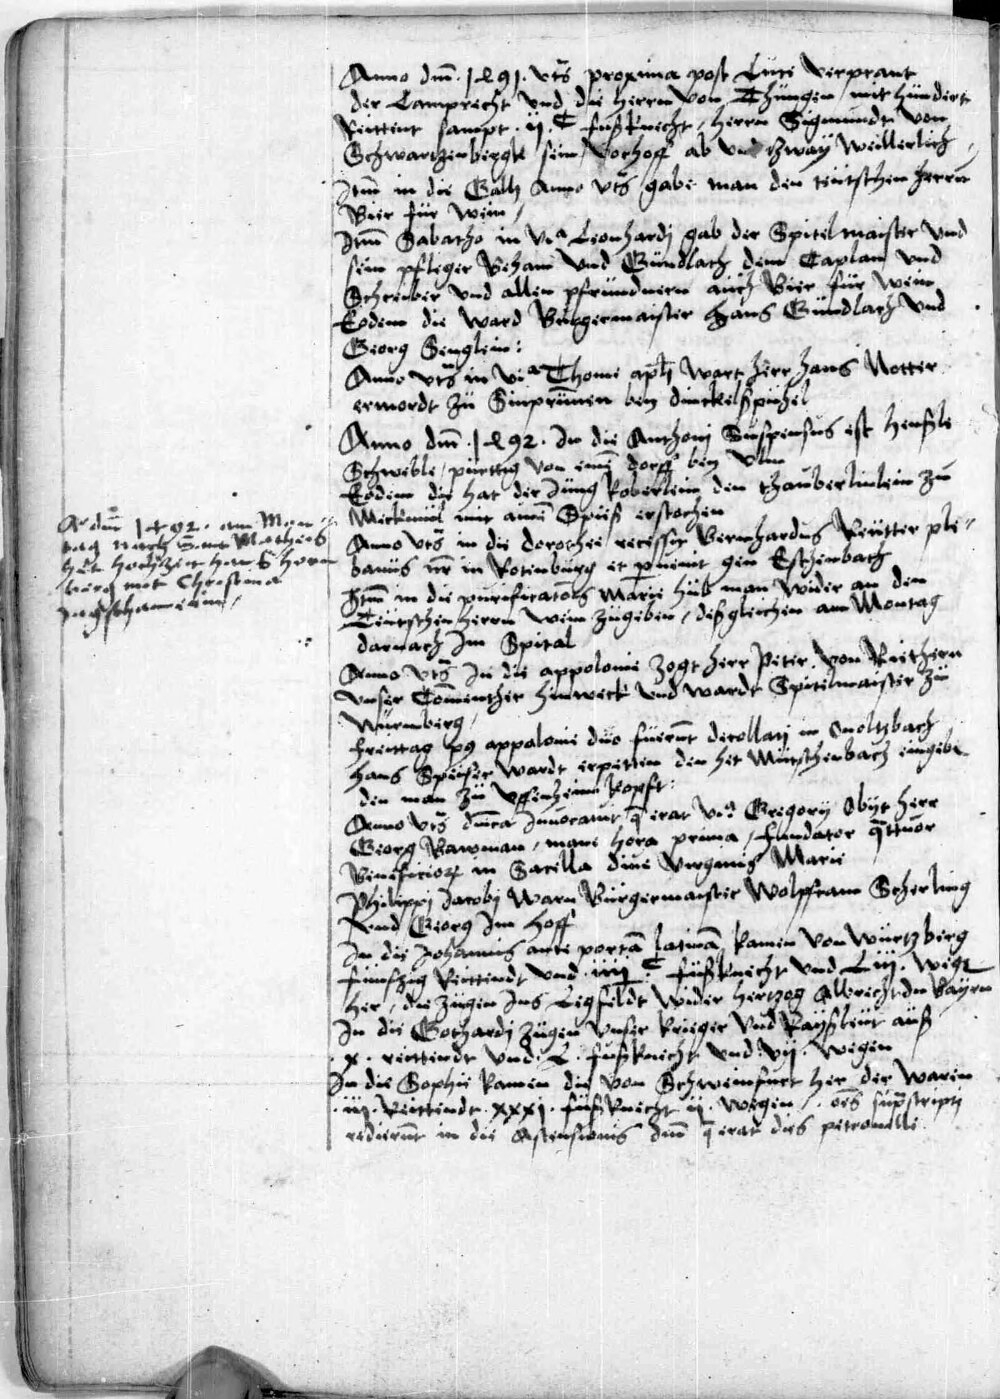 Anno dm̄. 1491. vts̄ proxima post Luce verprant
der Lamprecht vnd die herrn von Thüngen mit hündert
Reittent sampt .ij.C fußknecht / herrn Sigmundt von
Schwartzenbergk sein Vorhoff ab vnd zway Weillerlich /
Itm̄ in die Galli Anno vts̄ gabe man den teutschen herrn
Bier für Wein /
Itm̄ Sabatho in via Leonhardj gab der Spitelmaister vnd
sein pfleger Beham vnd Gündlach dem Caplan vnd
Schreiber vnd allen pfründnern auch Bier für Wein
Eodem die ward Bürgermaister Hans Gündlach vnd
Georg Senglein:
Anno vts̄ in via Thome apl̄j wart herr Hans Notter
ermordt zü Sinprünnen bey dinckelspühel
Anno dm̄. 1492. In die Anthonj Süspensüs est henßle
Schweble / pürttig von eim̄ dorff bey Vlm
Eodem die hat der Jüng Roberlein den
Meckmül mit aim̄ Spieß erstochen
Anno vts̄ in die dorothee recessit Bernhardus Reütter ple=
banüs nr̄ in Rotenbürg et pūenit gen Eschenbach
Itm̄ in die purificatōis Marie hüb man wider an den
Teütschen herrn wein zügeben / deßgleichen am Montag
darnach Im Spital
Anno vts̄ In die appolonie zogt herr Peter von
vnser Com̄enther hinweck vnd wardt Spitelmaister zü
Nürmberg /
Freittag p9 appalonie düo füerūt decollatj in Onoltzbach
hans Speiser wardt erpetten den het
den man zü Vffenheim kopfft:
Anno vts̄ dm̄ca Inuocauit q̄ erat via Gregorij Obijt herr
Georg Rawman / mane hora prima / fundator q̄ttuor
Beneficior in Sacella diue virginis Marie
Philippi Jacobj warn Bürgermaister Wolffram Scherling
Vnd Georg Im hoff
In die Johannis ante portā latinā kamen von Würtzberg
fünfzig Reittendt vnd .iiij.C fußknecht vnd Liij. Wege
her / die zügen Ins Legfeldt wider hertzog Albrecht In Bayrn
In die Gothardj zügen vnser krieger vnd Rayßleüt auß
.x. reittendt vnd .L. fußknecht vnd .vij. wegen
In die Sophie kamen die von Schweinfurt her der warin
.iij. Reittendt .xxxj. fußknecht ij. Wegen / oēs sup̄scriptj
redierūt in die Ascensionis Dm̄ q̄ erat dies petronelle.
A° dm̄ 1492. am Mon=
tag nach Sant Matheis
het hochzeit Hans horn
burg mit Christina